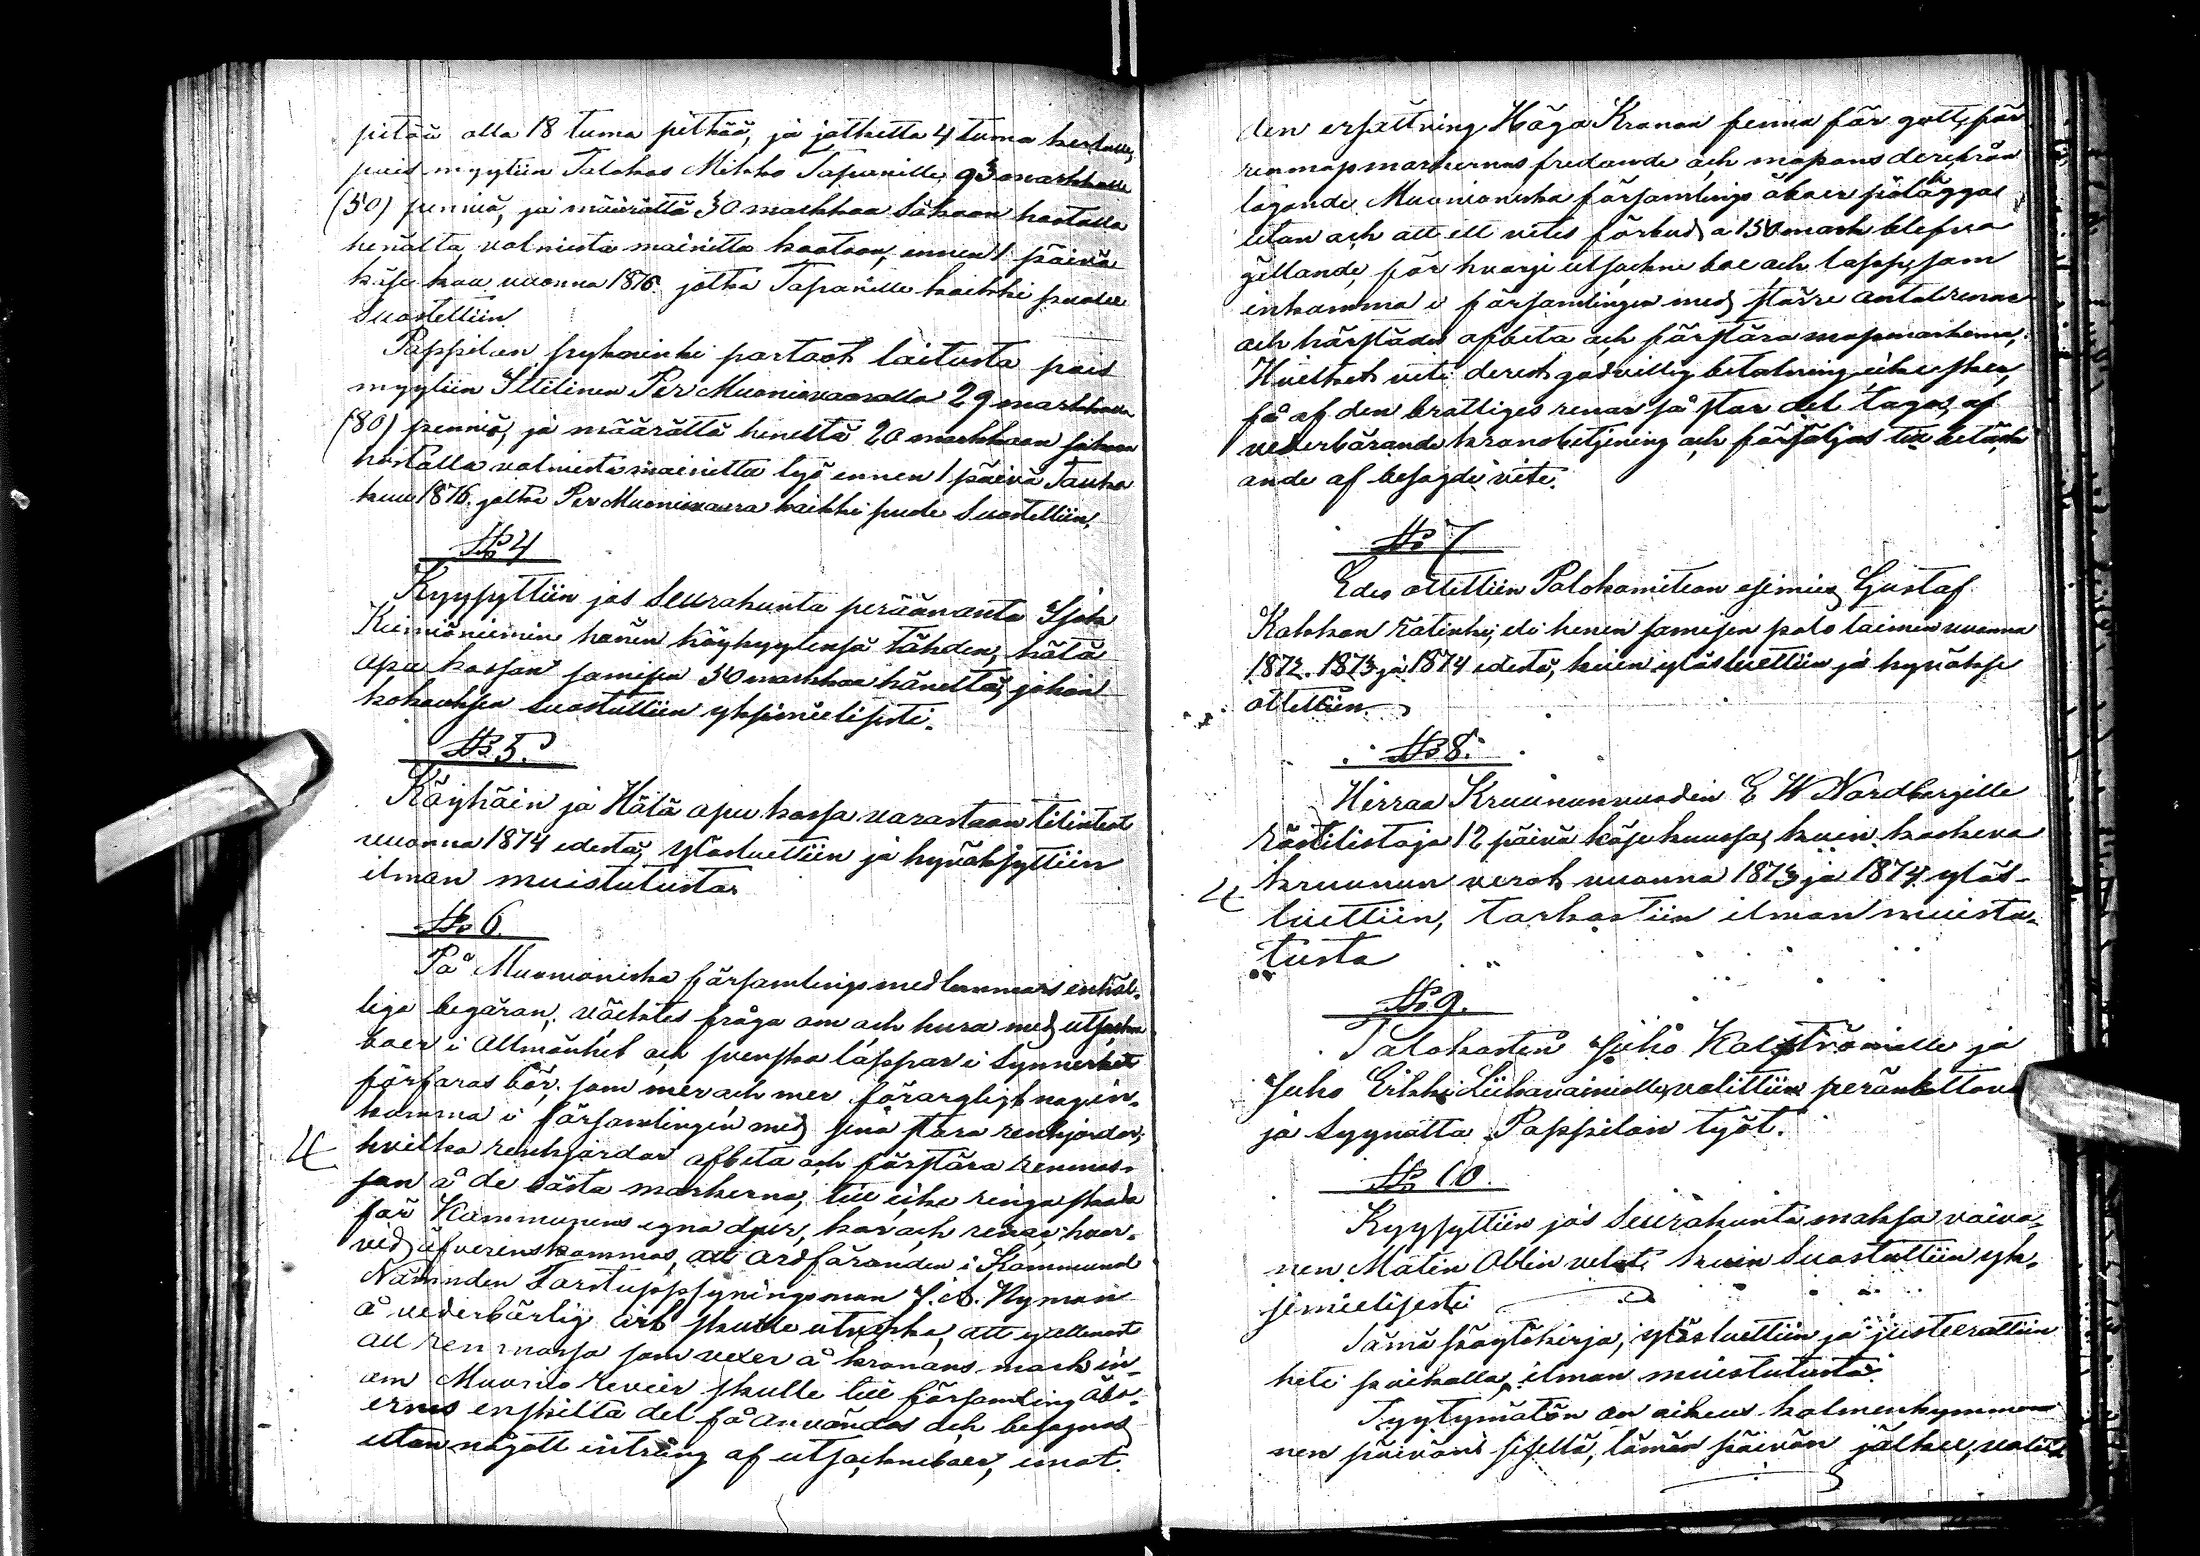 pitää olla 18 tuma pitkää, ja jatketta 4 tuma kertalle,
pois myytiin Talokas Mikko Tapanille, 93 markkalle
(50) penniä, ja määrättä 50 markkaa Sakaan haastalla
henälta valmista mainitta kaataan, ennen 1 päivä
käsä kuu vuonna 1876. jotka Tapanille kaikki puolle
Suostettiin.
Pappilan pykäinki partaat laitusta pois
myytiin Itellinen Per Muoniovaaralla 29 markkalla
(80) penniä, ja määrättä heneltä 20 markkaan sakaan
hastalla valmista mainitta työ ennen 1 päivä Tauko
kuu 1876. jotka Per Muoniovaara kaikki pude Suostettiin.
No 4
Kyysyttiin jos Seurakunta perään anta Isak
Kiemiöniemin hänen köyhyytensä tähden, hätä
apu kassan samisen 50 markkaa häneltä, johon
kokouksen Suostuttiin yksimielisesti.
No 5.
Käyhäin ja Hätä apu kassa varastaan tilinteot
vuonna 1874 edestä, ylösluettiin ja hyväksyttiin
ilman muistutusta.
No 6.
På Muonioniska församlings medlemmars enhäl-
liga begäran, väcktes fråga om och huru med utsockne
boer i Allmänhet och svenska lappar i Synnerhet
förfaras bör, som mer och mer förargligt nog in-
komma i församlingen med sina stora renhjordar,
4 hvilka renhjordar afbeta och förstöra renmos-
san å de bästa markerna, till icke ringa skada
för Kommunens egna djur, kor och renar, hvar-
vid öfverenskommos, att ordföranden i Kommunal
Nämnden Forstuppsyningsman J. A. Nyman
å vederbörlig ort skulle utverka, att ej allenast
all ren mossa som vexer å kronans mark in-
om Muonio revier skulle till församling åbo-
ernes enskilta del få användas och begagnas
utan något intrång af utsockneboer, emot
den ersättning Höga Kronan finna för gott, för
renmossmarkernas fredande och mossans derifrån
tagande Muonioniska församlings åboer påläggas
utan och att ett vites förbud, a 150 mark blefve
gällande, för hvarje utsockne boe och lapp, som
inkomma i församlingen med större antal renar
och härstädes afbeta och förstöra mossmarkerna,
Hvilket vite derest godvillig betalning icke sker,
få af den brottliges renar så stor del tagas af
vederbörande kronobetjening och försäljas till betäck
ande af besagde vite.
No 7
Edes otettiin Palokomitean esimies Gustaf
Kalkkon Rätinki, eli henen samisen palo taimen vuonna
1872. 1873 ja 1874 edestä, kuin ylösluettiin ja hyväkse
otettiin.
No 8.
Herraa Kruununvuodin E W Nordbergille
Rästilistaja 12 päivä käse kuussa, kuin koskeva
4 kruunun verot vuonna 1873 ja 1874. ylös-
luettiin, tarkastiin ilman muistu-
tusta
No 9.
Talokasten Juho Kalströmille ja
Juho Erkki Liikavainiolle, valittiin peränkattova
ja Syynätta Pappilan työt.
No 10.
Kyysyttiin jos Seurakunta maksa vaiva-
nen Matin Oblin velat, kuin Suostuttiin yk-
simielisesti
Tämä Pöytäkirja, ylösluettiin ja justeerattiin
heti paikalla, ilman muistutusta.
Tyytymätön on oikeus kolmenkymmene
nen päivän sisellä, tämän päivän jälkee, valitt